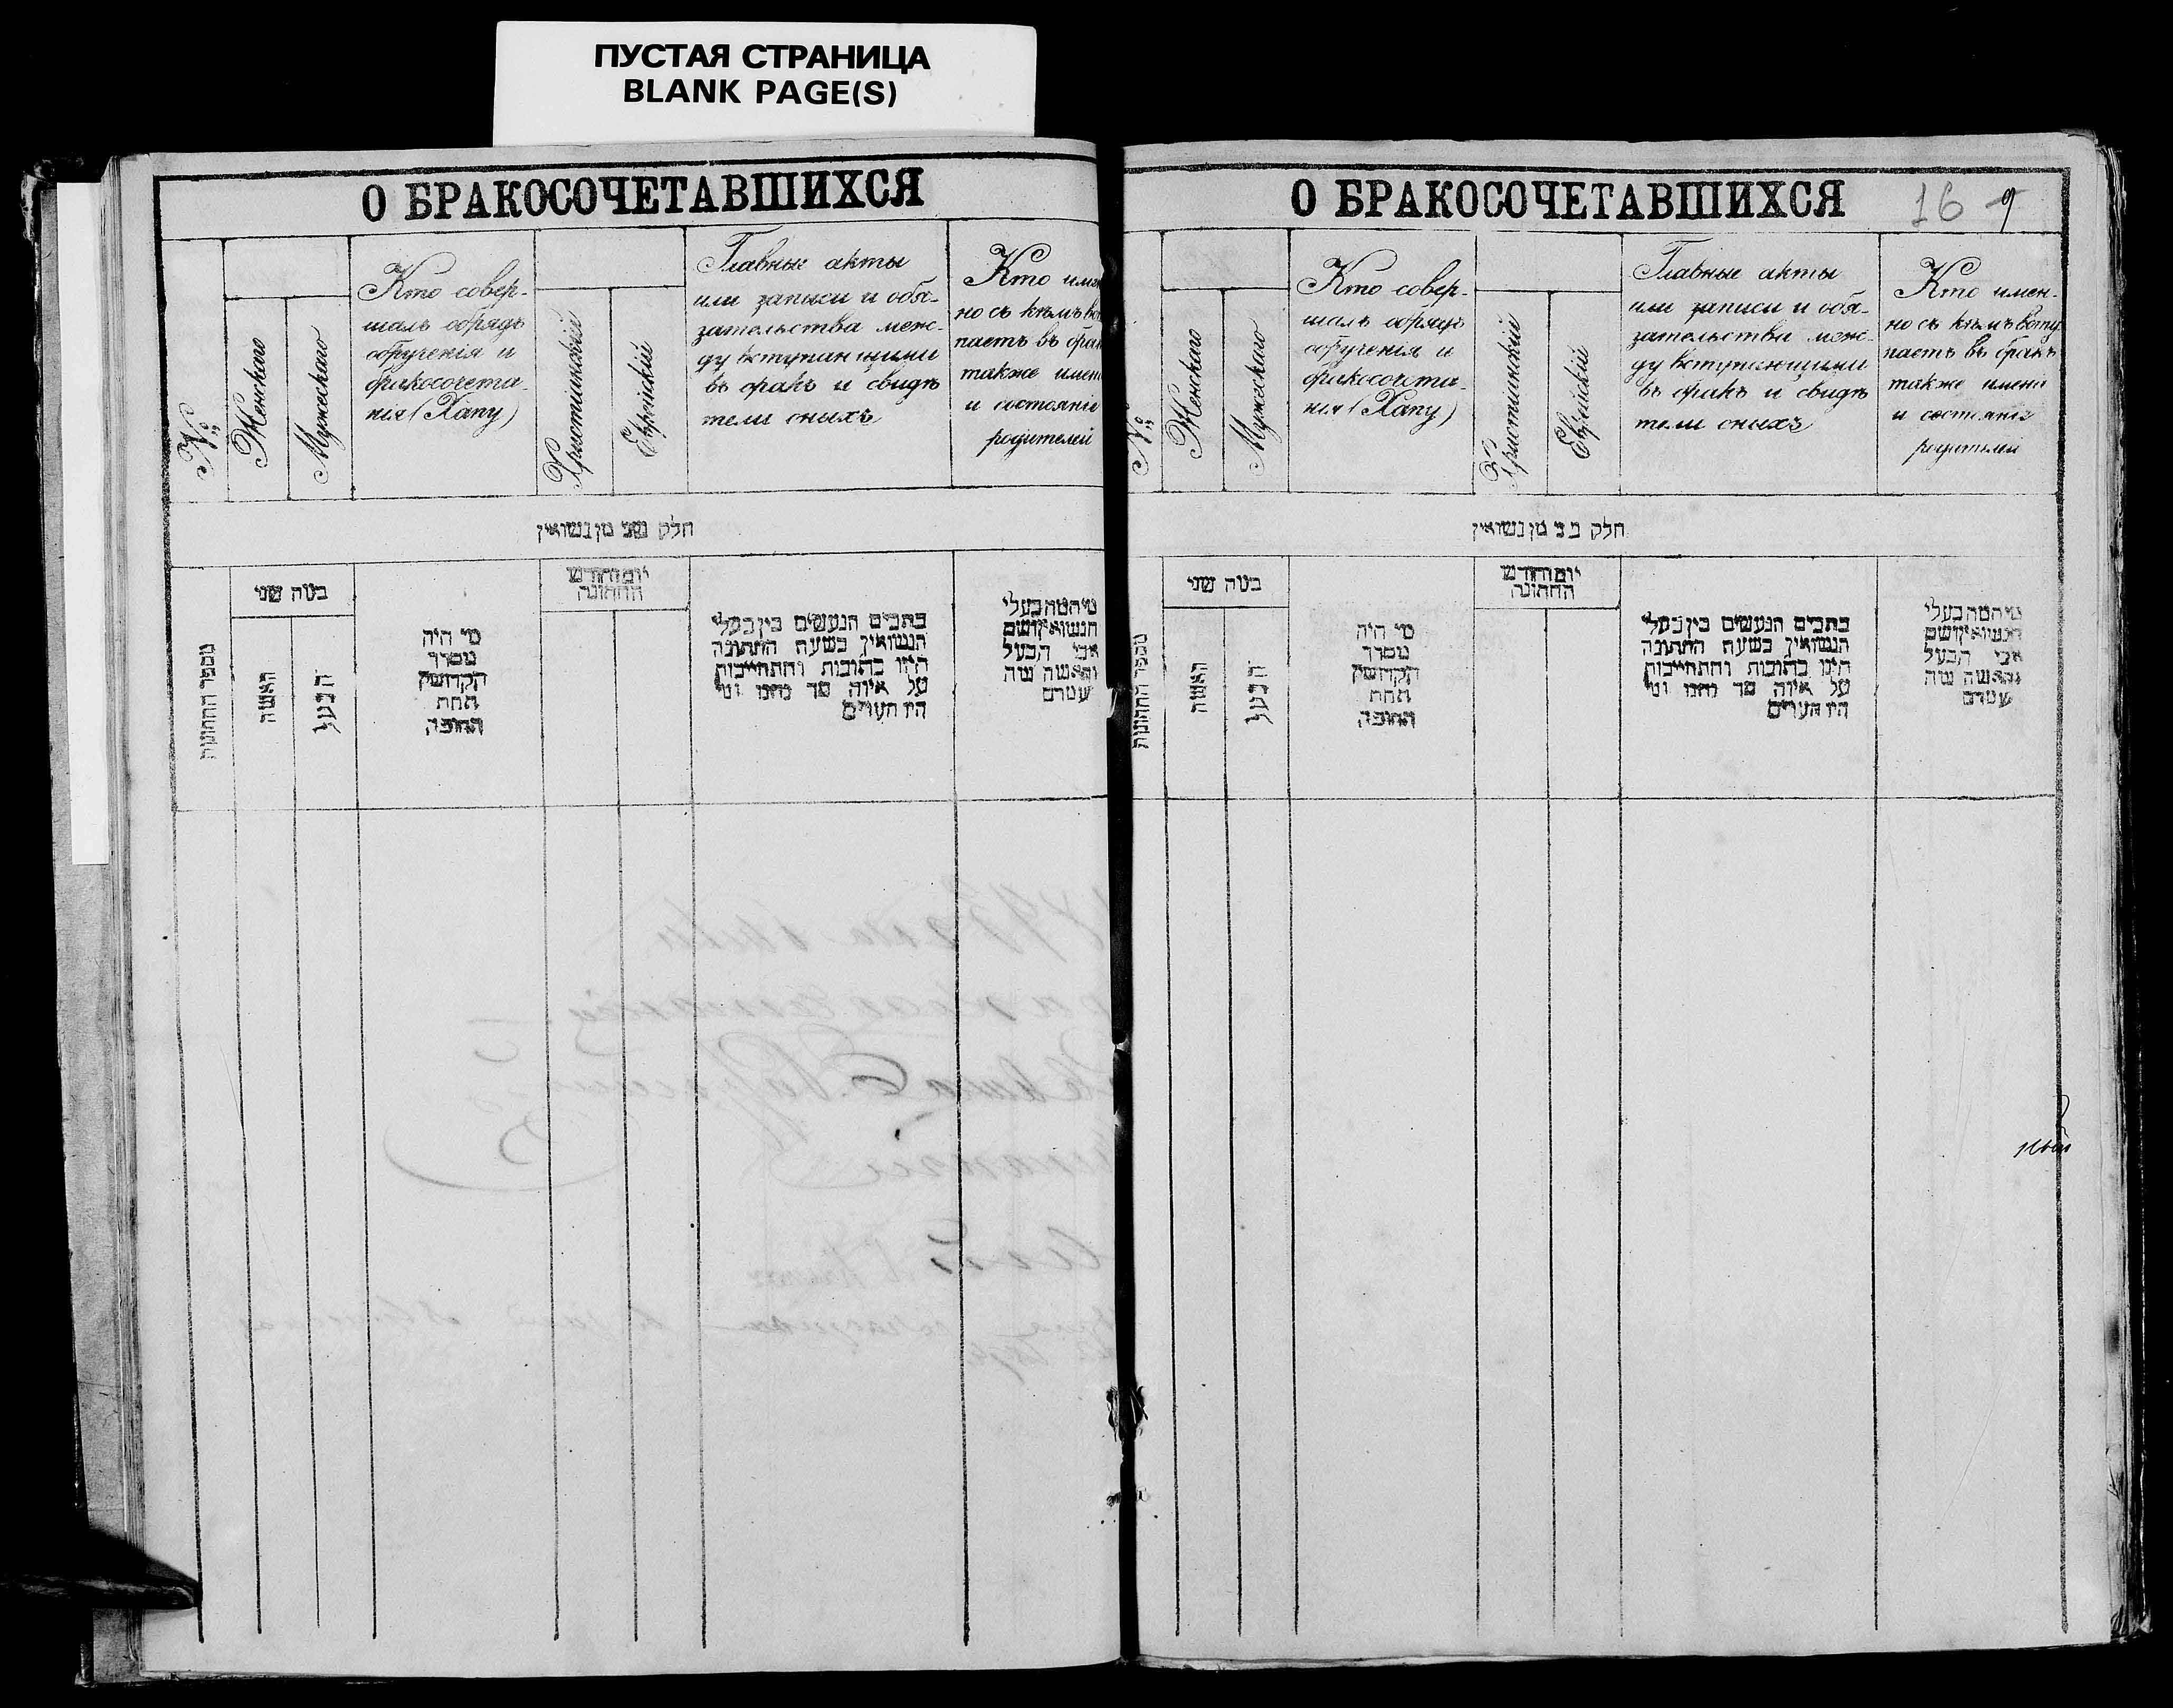 ПУСТАЯ СТРАНИЦА
BLANK PAGE(S)
О БРАКОСОЧЕТАВШИХСЯ
№
Женскаго
Мужескаго
Кто совер-
шалъ обрядъ
обрученія и
бракосочета-
нія (Хапу)
Христіанскій
Еврейскій
Главныя акты
или записи и обя-
зательства меж-
ду вступающими
въ бракъ и свидѣ
тели оныхъ
Кто имен
но съ кѣмъ всту
паетъ въ брак
также имена
и состояніе
родителей
חלק שני מן נשואין
מספר החתונות
כמה שני
האשה
הבעל
מי היה
מסדר
הקדושין
תחת
החופה
יום וחודש
החתונה
כתבים הנעשים בין בעלי
הנשואין בשעת החתונה
היינו כתובות והתחייבות
על איזה סך
היו העדים
מי המה בעלי
הנשואין ושם
אבי הבעל
והאשה
О БРАКОСОЧЕТАВШИХСЯ
16
9
№
Женскаго
Мужескаго
Кто совер-
шалъ обрядъ
обрученія и
бракосочета-
нія (Хапу)
Христіанскій
Еврейскій
Главныя акты
или записи и обя-
зательства меж-
ду вступающими
въ бракъ и свидѣ
тели оныхъ
Кто имен-
но съ кѣмъ всту
паетъ въ бракъ
также имена
и состояніе
родителей
חלק שני מן נשואין
מספר החתונות
כמה שני
האשה
הבעל
מי היה
מסדר
הקדושין
תחת
החופה
יום וחודש
החתונה
כתבים הנעשים בין בעלי
הנשואין בשעת החתונה
היינו כתובות והתחייבות
על איזה סך
היו העדים
מי המה בעלי
הנשואין ושם
אבי הבעל
והאשה